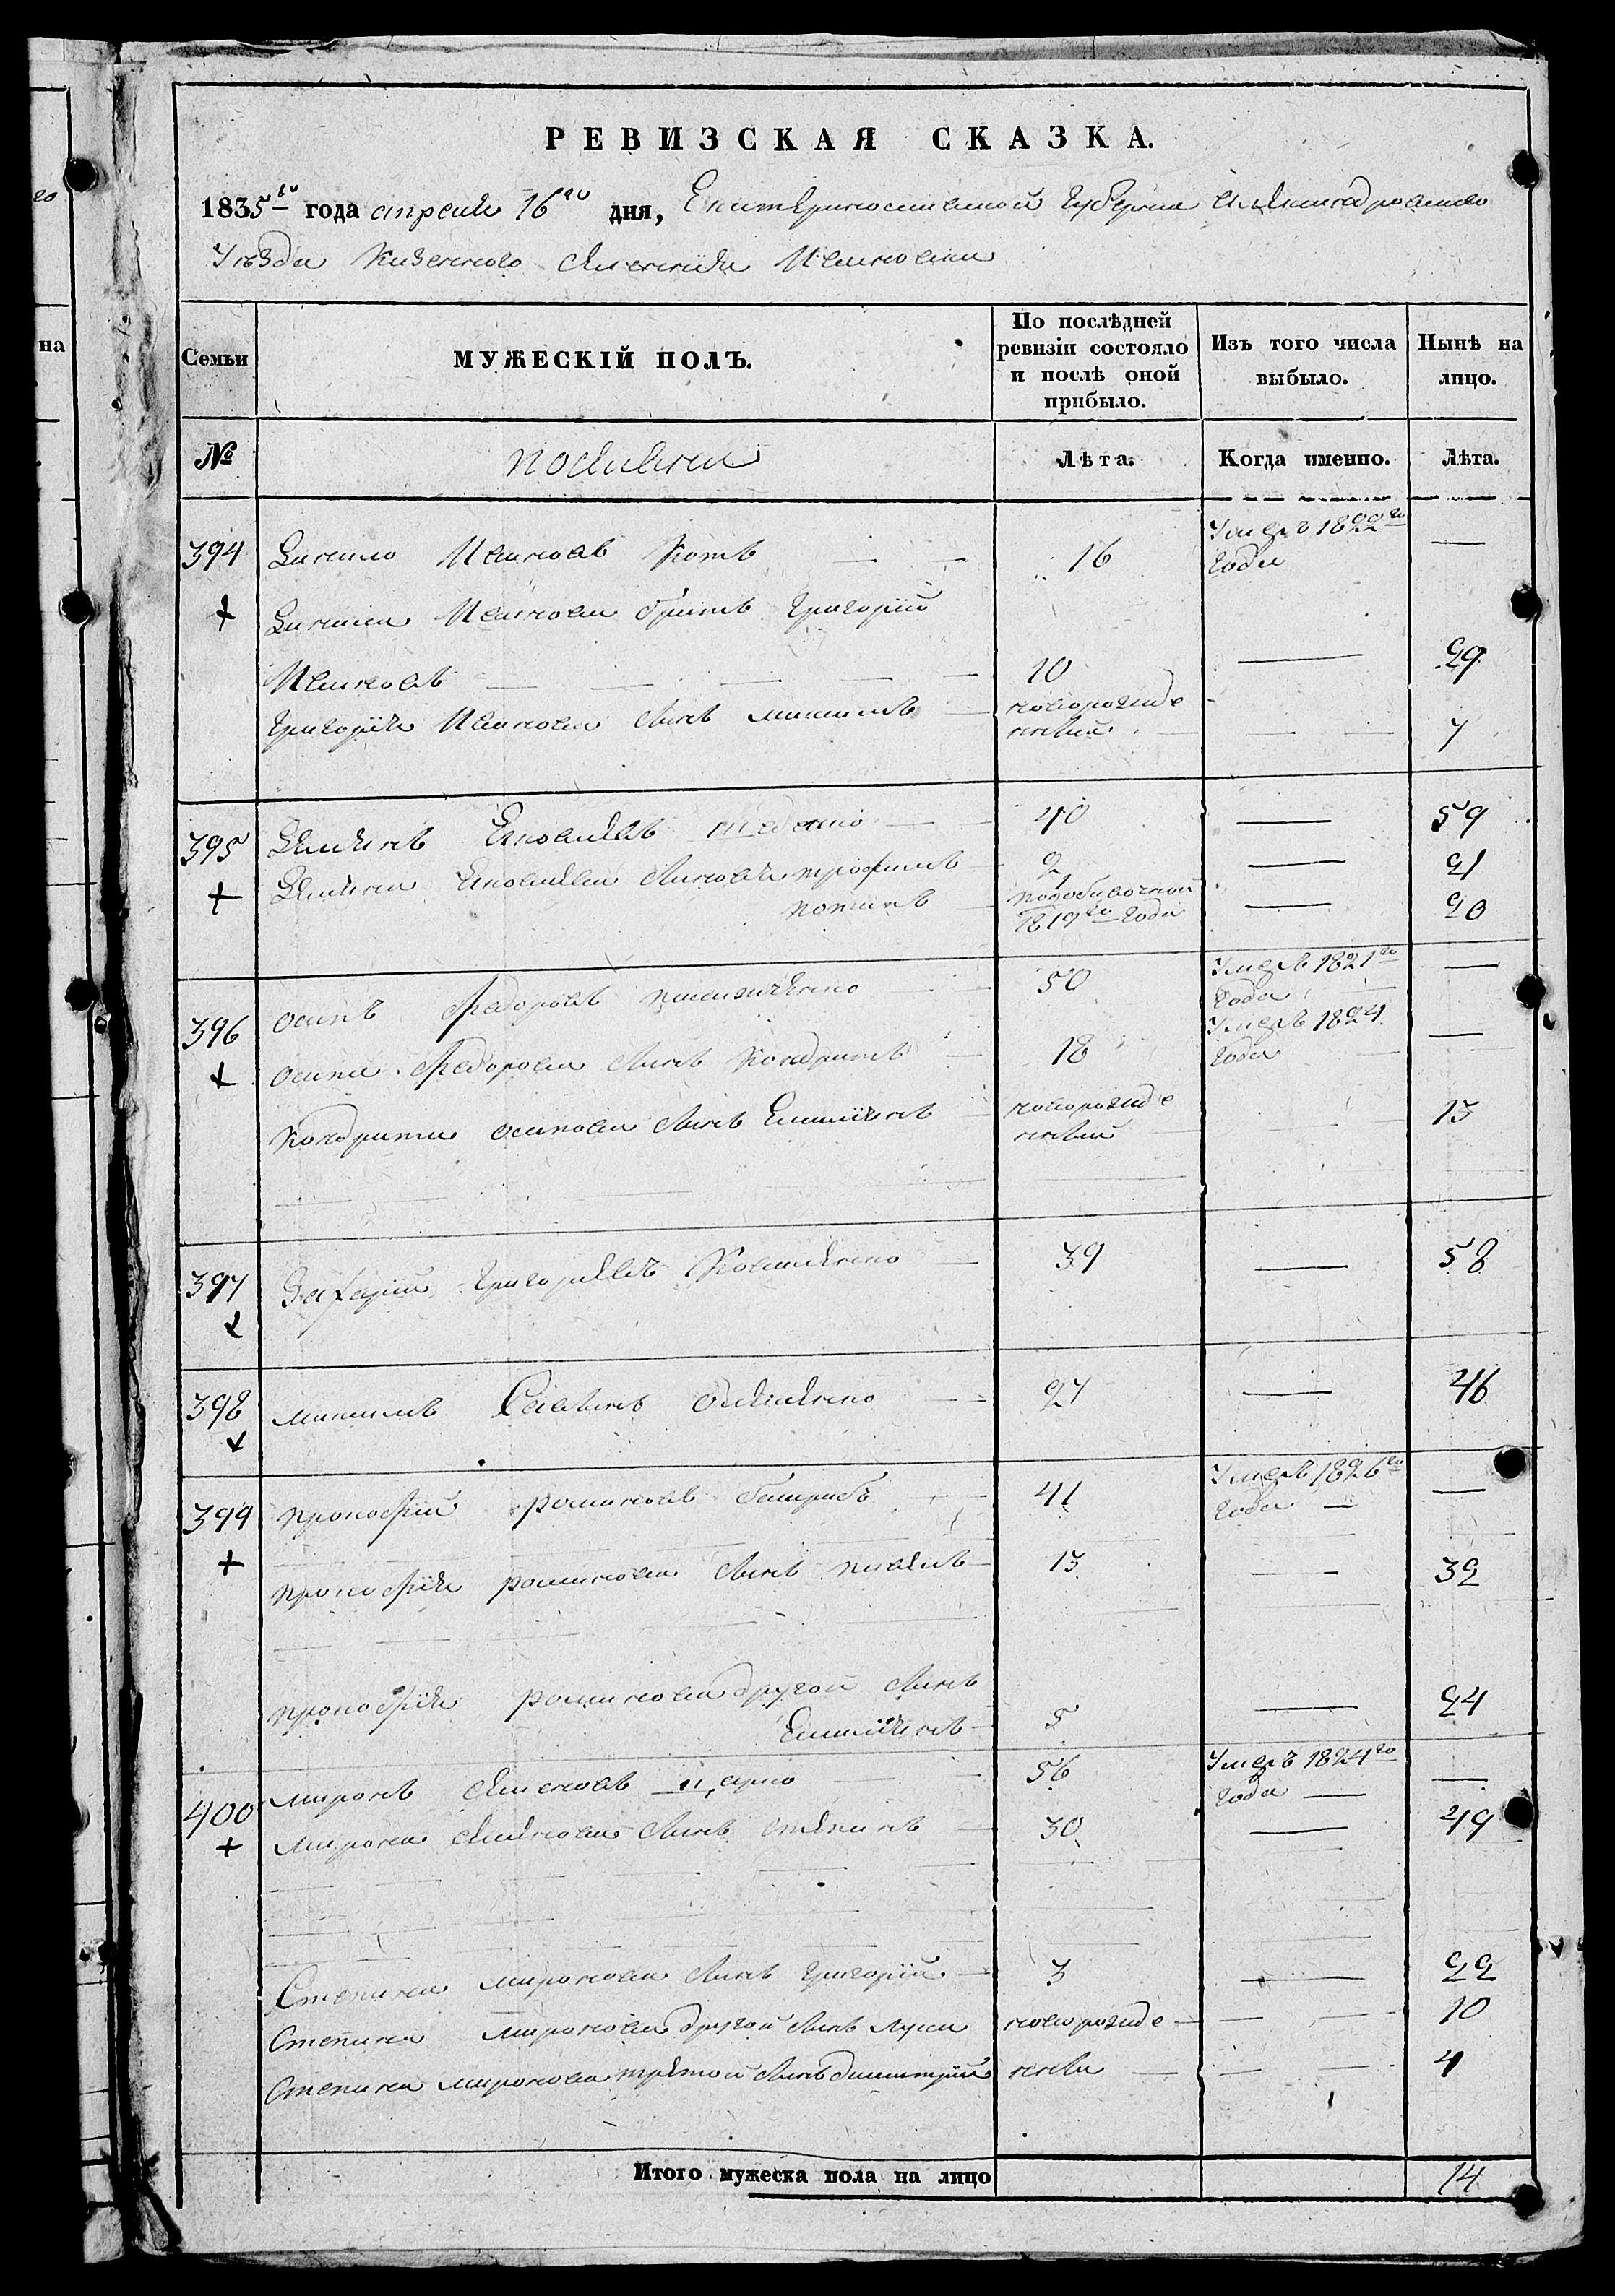 го
на
РЕВИЗСКАЯ СКАЗКА.
1835го года апреля 16го дня, Екатеринославской губернии Александровского
Уезда Казенного селения Ивановки
Семьи
МУЖЕСКІЙ ПОЛЪ.
По послѣдней ревизіи состояло и послѣ оной прибыло.
Изъ того числа выбыло.
Нынѣ на лицо.
№
Лѣта.
Когда именно.
Лѣта.
394 Данило Ивановъ Котъ — — 16 Умеръ 1822го года —
Данила Иванова братъ Григорий
Ивановъ — — — — — 10 — 29
Григорія Иванова сынъ максимъ — новорожде
нный — — — 7
395 Яковлевъ — 40 — 59
Яковлева сыновя трофимъ — 2 — 21
потапъ — 1819го года — 20
396 осипъ Федоровъ — 50 Умеръ 1821го года —
осипа Федорова сынъ Кондратъ — 18 Умеръ 1824 года —
Кондрата осипова сынъ Емельянъ — новорожде
нный — 13
397 Захарий Григорьевъ Коваленко — 39 — 58
398 максимъ Савинъ — 27 — 46
399 прокофий романовъ — 41 Умеръ 1826го года — —
прокофія романова сынъ павелъ — 13 — — 32
прокофія романова другой сынъ
Емельянъ — 5 — 24
400 миронъ — 56 Умеръ 1824го года — —
мирона сынъ степанъ — 30 — 49
Степана миронова сынъ григорій — 3 — 22
Степана миронова другой сынъ лука новорожде — — — 10
Степана миронова третой сынъ димитрий нны — — — 4
Итого мужеска пола на лицо 14